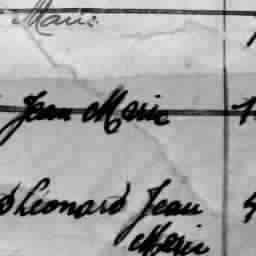 Marie
Jean Marie
Léonard Jean
Marie